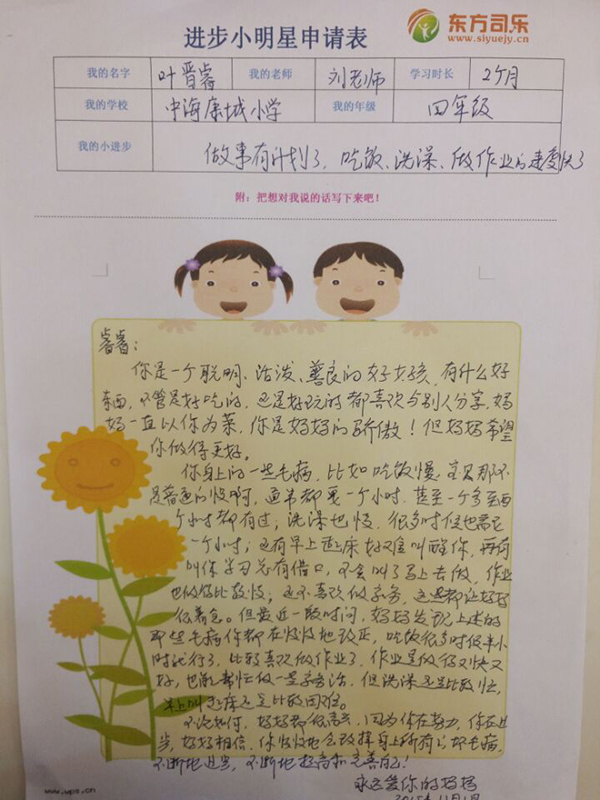 进步小明星申请表
东方司乐
www.siyuejy.cn
我的名字 叶晋睿 我的老师 刘老师 学习时长 2个月
我的学校 中海康城小学 我的年级 四年级
我的小进步 做事有计划了,吃饭、洗澡、做作业的速度快了
附:把想对我说的话写下来吧!
睿睿:
你是一个聪明、活泼、善良的好女孩,有什么好
东西,不管是好吃的,还是好玩的都喜欢与别人分享,妈
妈一直以你为荣,你是妈妈的骄傲!但妈妈希望
你做得更好。
你身上的一些毛病,比如吃饭慢,那不
是普通的慢啊,通常都要一个小时,甚至一个多至两
个小时都有过;洗澡也慢,很多时候也需它
一个小时;还有早上起床好难叫醒你,再有
叫你学习总有借口,不会叫了马上去做,作业
也做得比较慢;还不喜欢做家务,这些都让妈妈
很着急。但最近一段时间,妈妈发现上述的
那些毛病你都在慢慢地改正,吃饭很多时候半小
时就行了,比较喜欢做作业了,作业是做得又快又
好,也能帮忙做一些家务活,但洗澡还是比较忙,
早上叫起床还是比较困难。
不论如何,妈妈都很高兴,因为你在努力,你在进
步,妈妈相信,你慢慢地会改掉身上所有的坏毛病,
不断地进步,不断地提高和完善自己!
永远爱你的妈妈
2015.11.1日
www.wps.cn